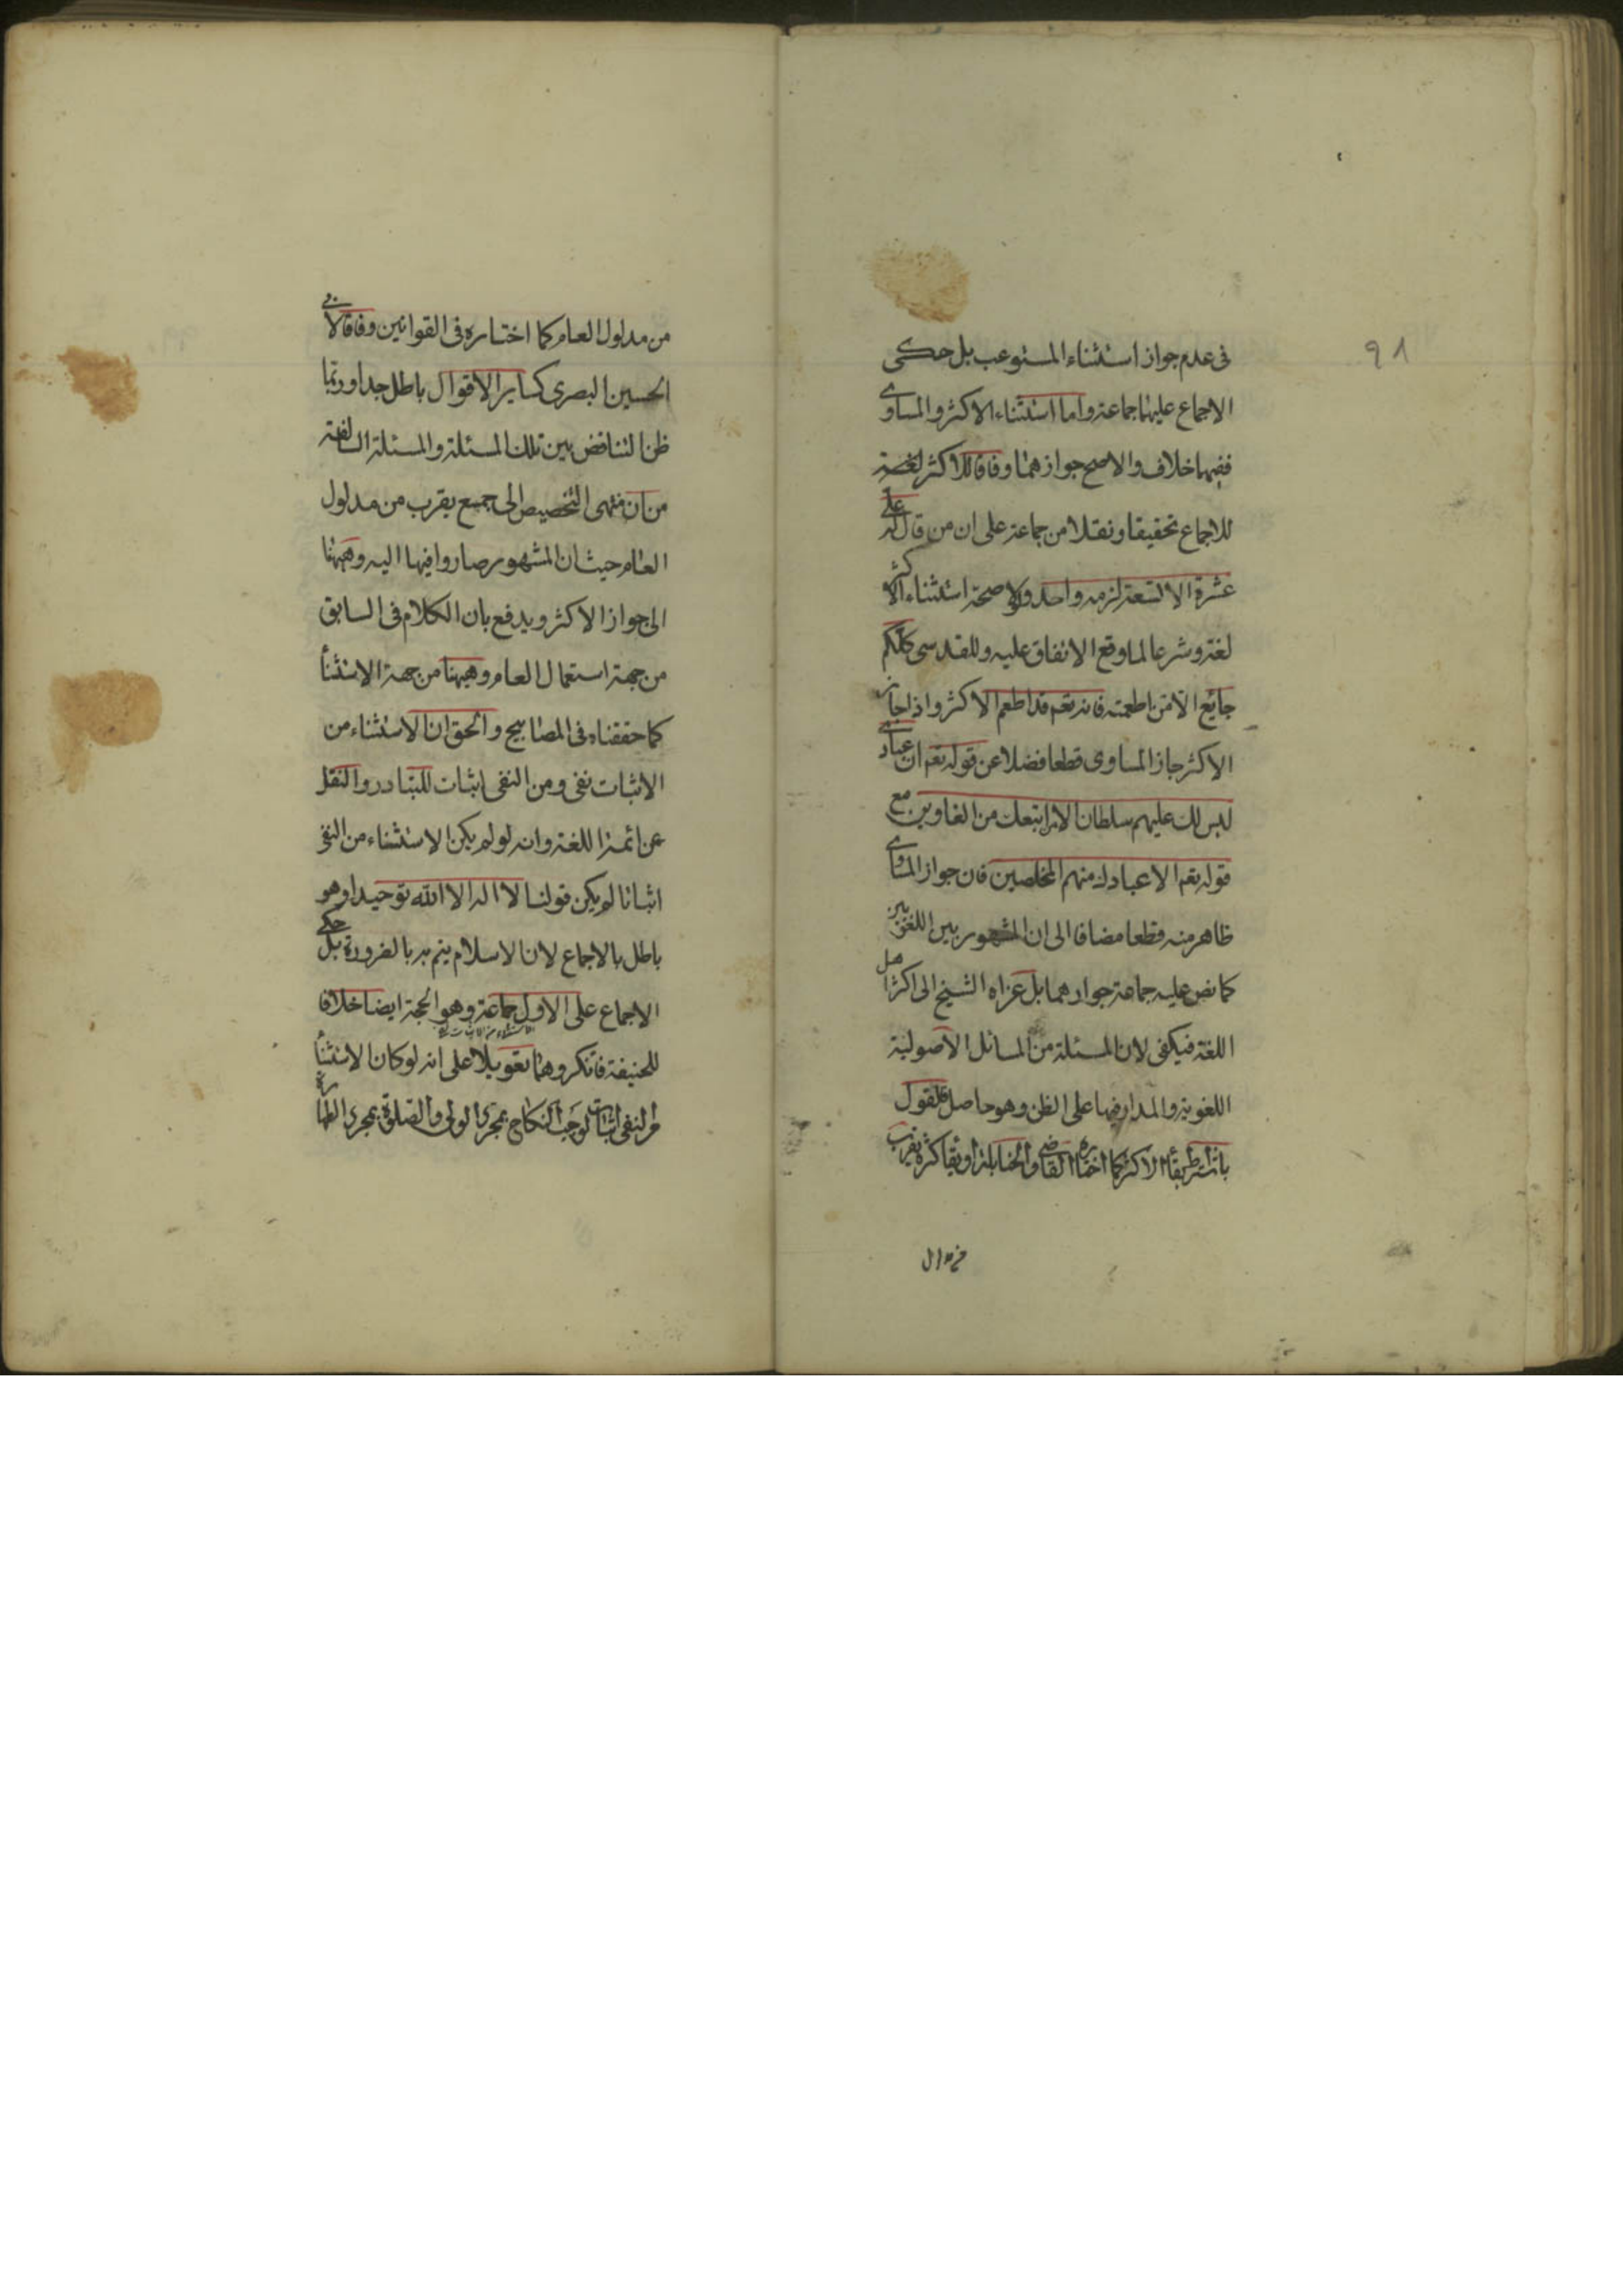 ٩٨
فى عدم جواز استثناء المستوعب بل حكى
الاجماع عليها جماعة واما استثناء الاكثر والمساوى
ففيهما خلاف والاصح جوازهما وفاقا للاكثر لغة
للاجماع تحقيقا ونقلا من جماعة على ان من قال له على
عشرة الا تسعة لزمه واحد ولولا صحة استثناء الاكثر
لغة وشرعا لما وقع الاتفاق عليه وللقدسى كلكم
جايع الا من اطعمته فانه تعم قد اطعم الاكثر واذا جاز
الاكثر جاز المساوى قطعا فضلا عن قوله تعم ان عبادى
ليس لك عليهم سلطان الا من اتبعك من الغاوين مع
قوله تعم الا عبادك منهم المخلصين فان جواز المساوى
ظاهر منه قطعا مضافا الى ان المشهور بين اللغويين
كما نص عليه جماعة جوازهما بل عزاه الشيخ الى اكثر اهل
اللغة فيكفى لان المسئلة من المسائل الاصولية
اللغوية والمدار فيها على الظن وهو حاصل فالقول
باشتراط بقاء الاكثر كما اختاره القاضى والحنابلة او بقاء كثرة يقرب
من مدلول العام كما اختاره فى القوانين وفاقا لابى
الحسين البصرى كساير الاقوال باطل جدا وربما
ظن التناقض بين تلك المسئلة والمسئلة السالفة
من ان منتهى التخصيص الى جمع يقرب من مدلول
العام حيث ان المشهور صاروا فيها اليه وههنا
الى جواز الاكثر ويدفع بان الكلام فى السابق
من جهة استعمال العام وههنا من جهة الاستثناء
كما حققناه فى المصابيح والحق ان الاستثناء من
الاثبات نفى ومن النفى اثبات للتبادر والنقل
عن ائمة اللغة وانه لو لم يكن الاستثناء من النفى
اثباتا لم يكن قولنا لا اله الا الله توحيدا وهو
باطل بالاجماع لان الاسلام يتم به بالضرورة بل حكى
الاجماع على الاول جماعة وهو الحجة ايضا خلافا
للحنيفة فانكروهما تعويلا على انه لو كان الاستثناء
من النفى اثبات لوجب النكاح بمجرى الولى والصلوة بمجرى الطهارة